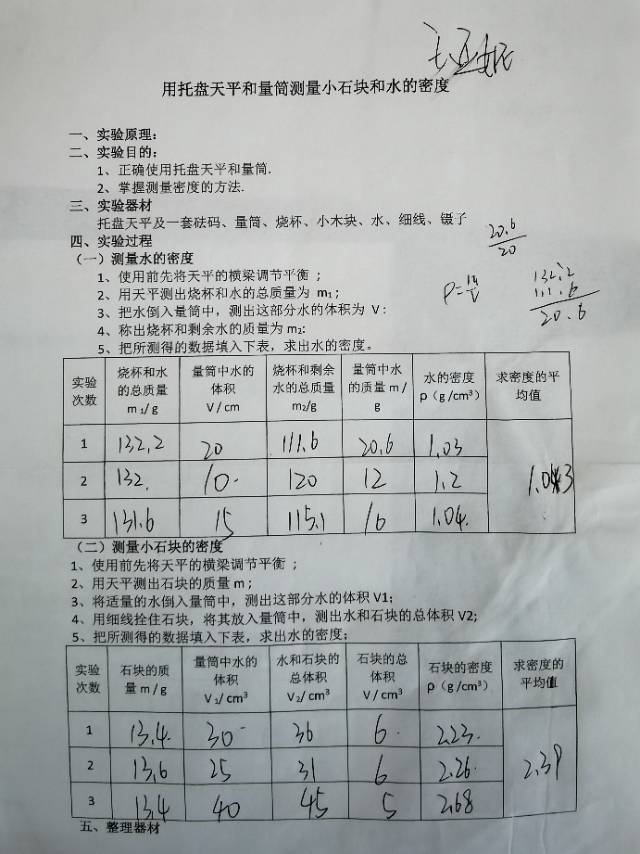 用托盘天平和量筒测量小石块和水的密度
一、实验原理:
二、实验目的:
1、正确使用托盘天平和量筒.
2、掌握测量密度的方法.
三、实验器材
托盘天平及一套砝码、量筒、烧杯、小木块、水、细线、镊子
20.6
20
四、实验过程
(一)测量水的密度
1、使用前先将天平的横梁调节平衡 ;
ρ=m/V
132.2
2、用天平测出烧杯和水的总质量为 m₁;
111.6
3、把水倒入量筒中,测出这部分水的体积为 V:
20.6
4、称出烧杯和剩余水的质量为 m₂:
5、把所测得的数据填入下表,求出水的密度。
实验次数 烧杯和水的总质量 m₁/g 量筒中水的体积 V/cm 烧杯和剩余水的总质量 m₂/g 量筒中水的质量 m/g 水的密度 ρ(g/cm³) 求密度的平均值
1 132.2 20 111.6 20.6 1.03
2 132. 10 120 12 1.2
3 131.6 15 115.1 16 1.04
(二)测量小石块的密度
1、使用前先将天平的横梁调节平衡 ;
2、用天平测出石块的质量 m;
3、将适量的水倒入量筒中,测出这部分水的体积 V1;
4、用细线拴住石块,将其放入量筒中,测出水和石块的总体积 V2;
5、把所测得的数据填入下表,求出水的密度;
实验次数 石块的质量 m/g 量筒中水的体积 V₁/cm³ 水和石块的总体积 V₂/cm³ 石块的总体积 V/cm³ 石块的密度 ρ(g/cm³) 求密度的平均值
1 13.4 30 36 6 2.23
2 13.6 25 31 6 2.26 2.39
3 13.4 40 45 5 2.68
五、整理器材